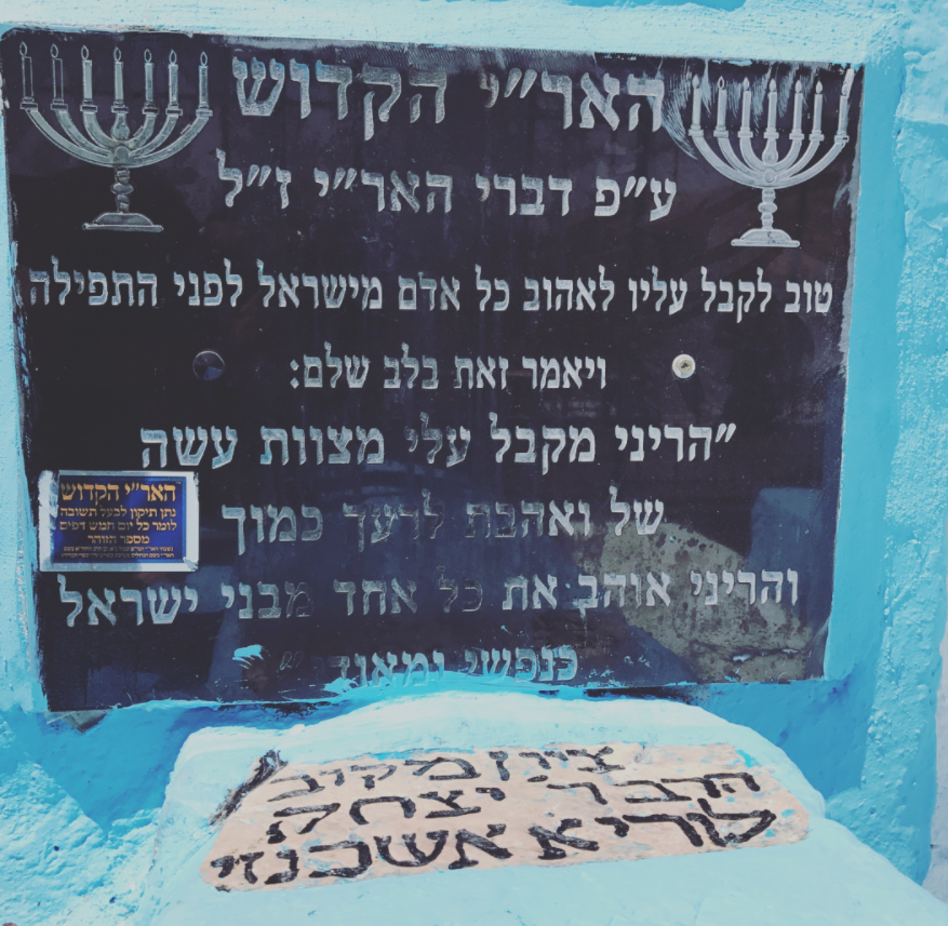 האר״י הקדוש
ע״פ דברי האר״י ז״ל
טוב לקבל עליו לאהוב כל אדם מישראל לפני התפילה
ויאמר זאת בלב שלם:
״הריני מקבל עלי מצוות עשה
של ואהבת לרעך כמוך
והריני אוהב את כל אחד מבני ישראל
כנפשי ומאודי״
האר״י הקדוש
נתן תיקון לבעל תשובה
לומר כל יום חמש דפים
מספר הזוהר
ציון מקוב
הרבר יצחק
לוריא אשכנזי